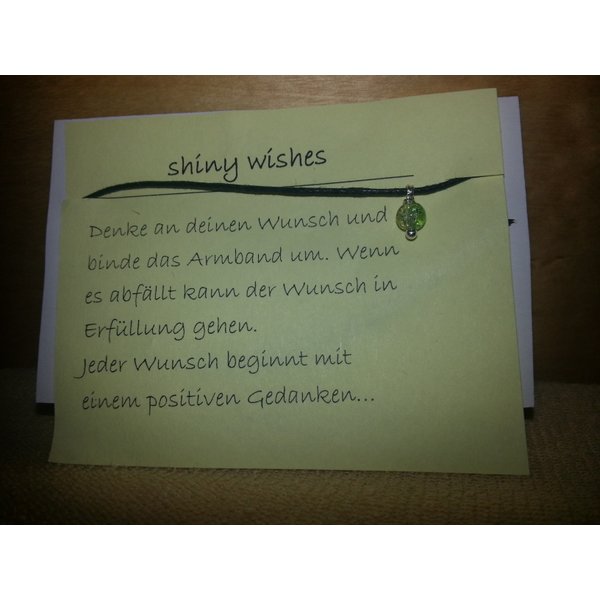 shiny wishes
Denke an deinen Wunsch und
binde das Armband um. Wenn
es abfällt kann der Wunsch in
Erfüllung gehen.
Jeder Wunsch beginnt mit
einem positiven Gedanken...